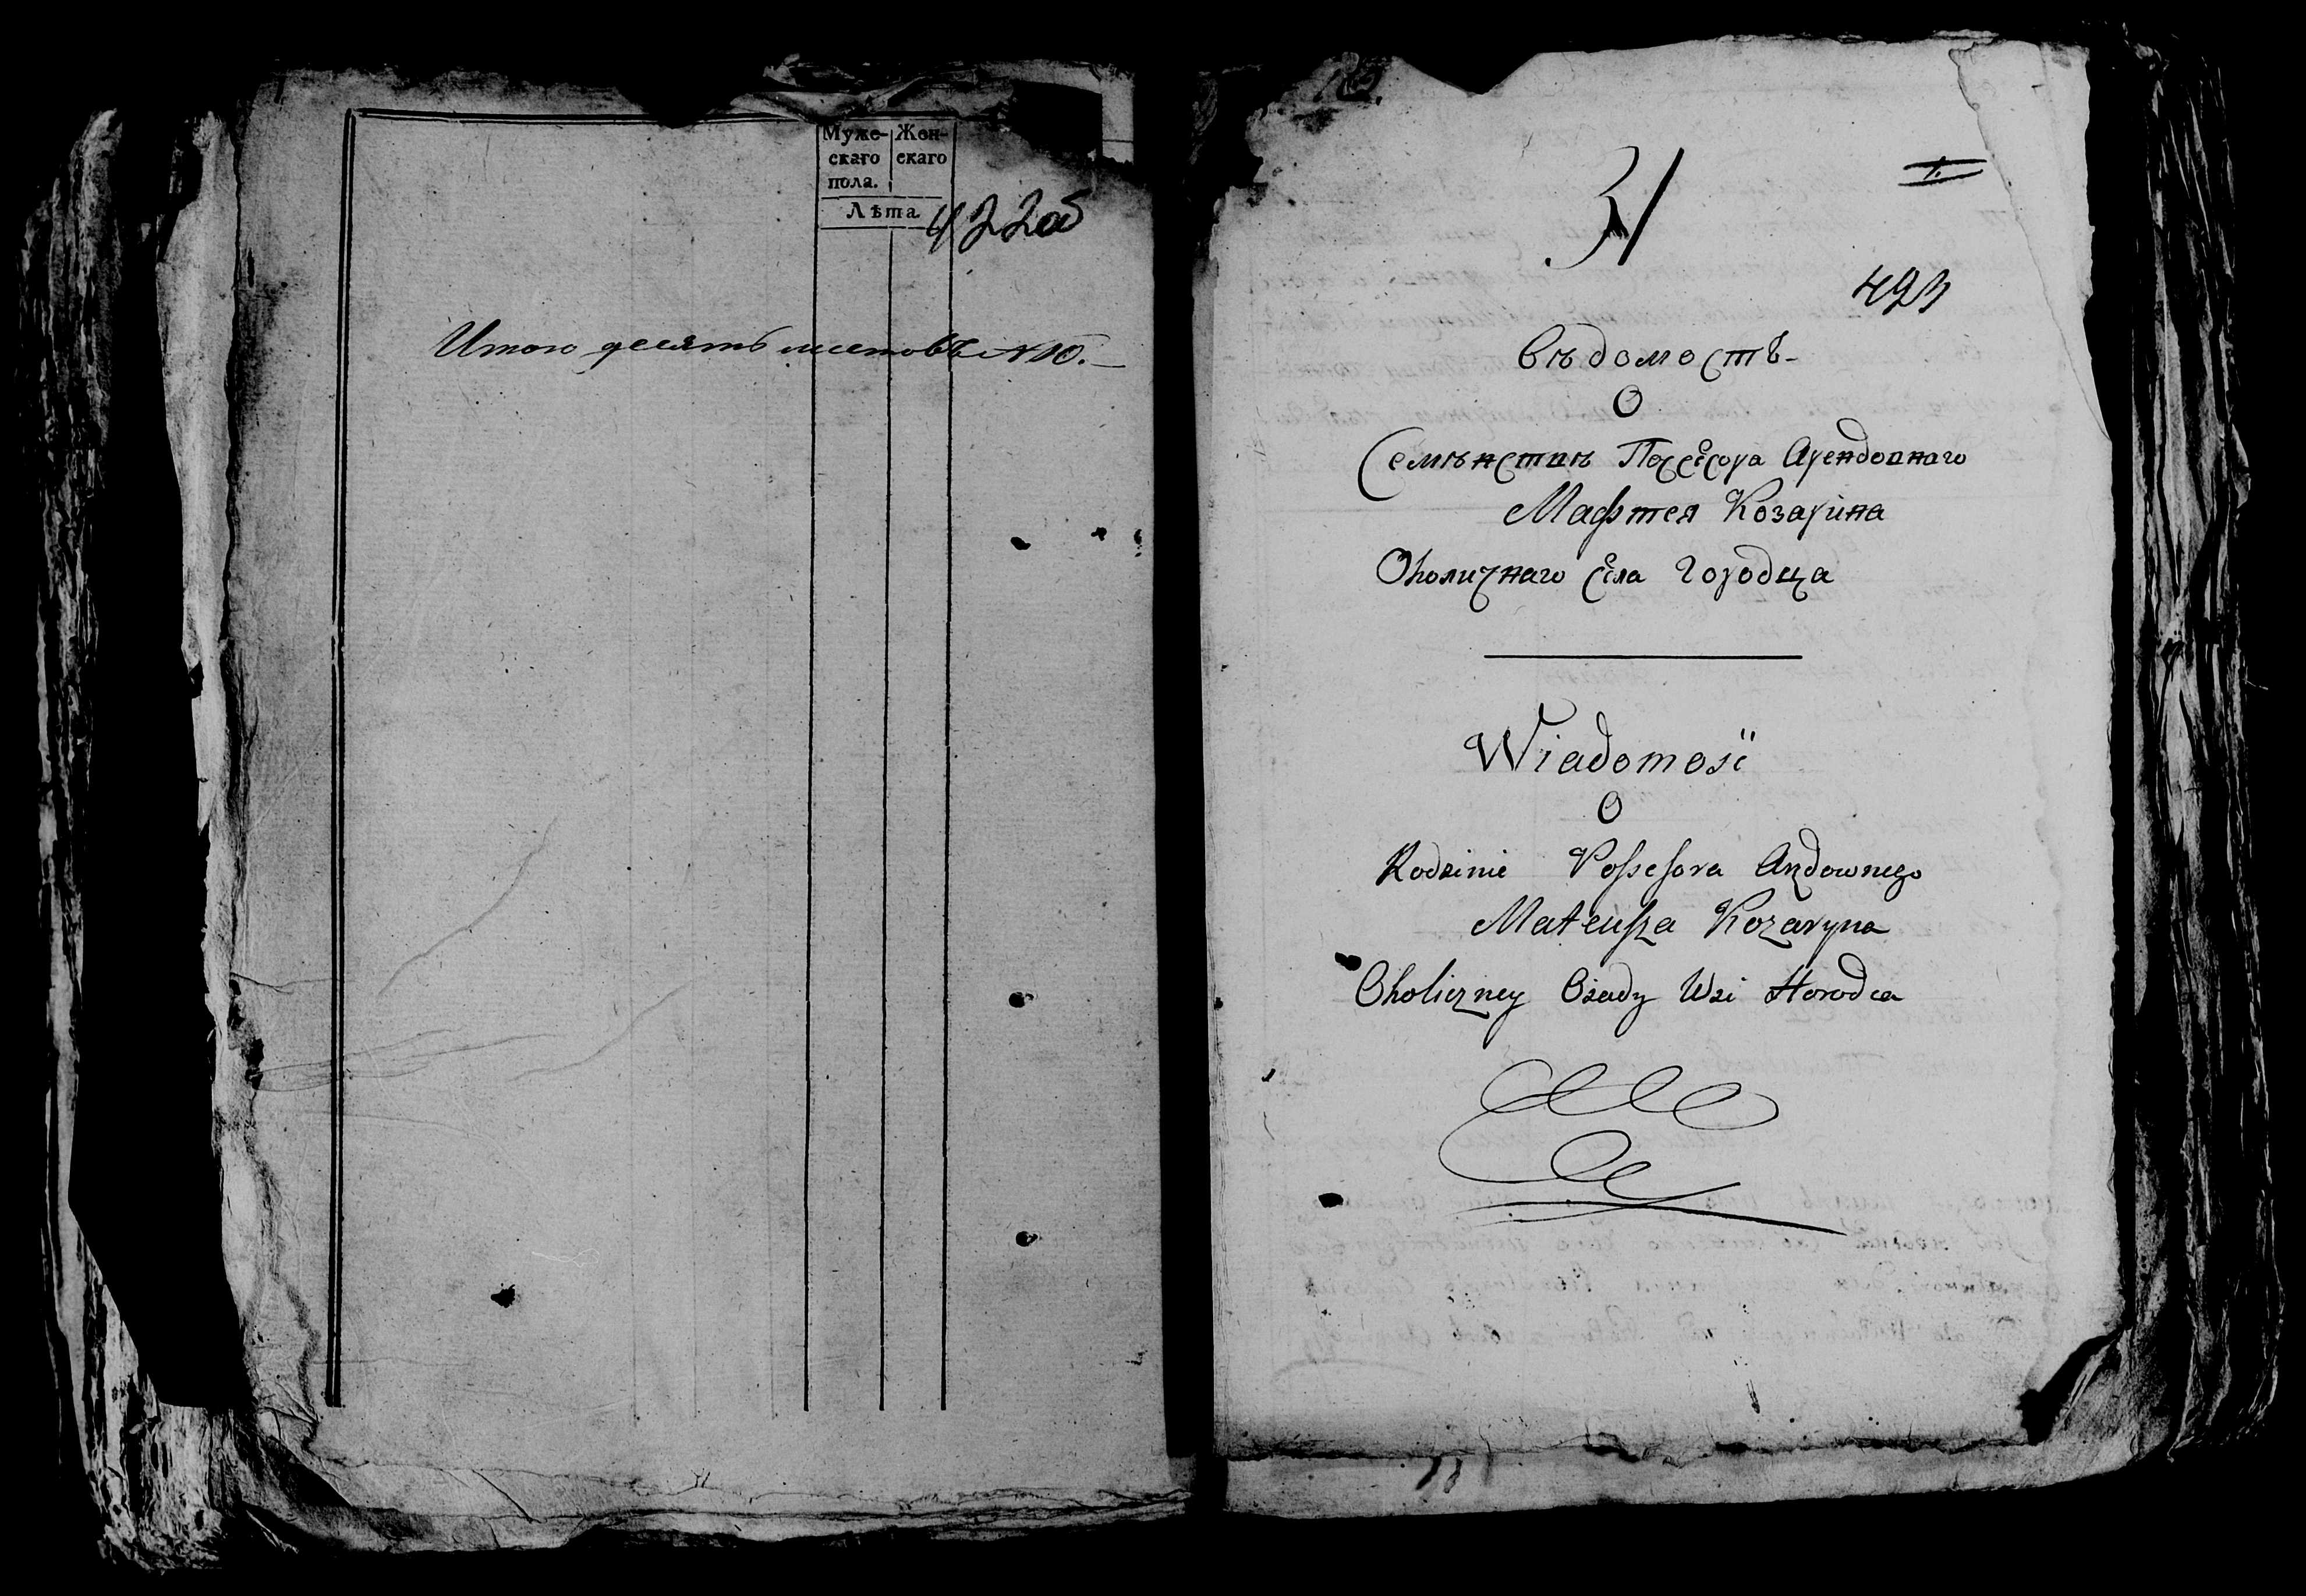 Муже- Жен-
скаго скаго
пола.
Лѣта
422об
Итого десять листовъ №10.
31
1.
423
Вѣдомость
О
Семѣйствѣ Поссесора Арендовнаго
Мафтея Козарина
Околичнаго Села Городца
Wiadomość
O
Rodzinie Possessora Arędownego
Mateusza Kozaryna
Okoliczney Osady Wsi Horodca